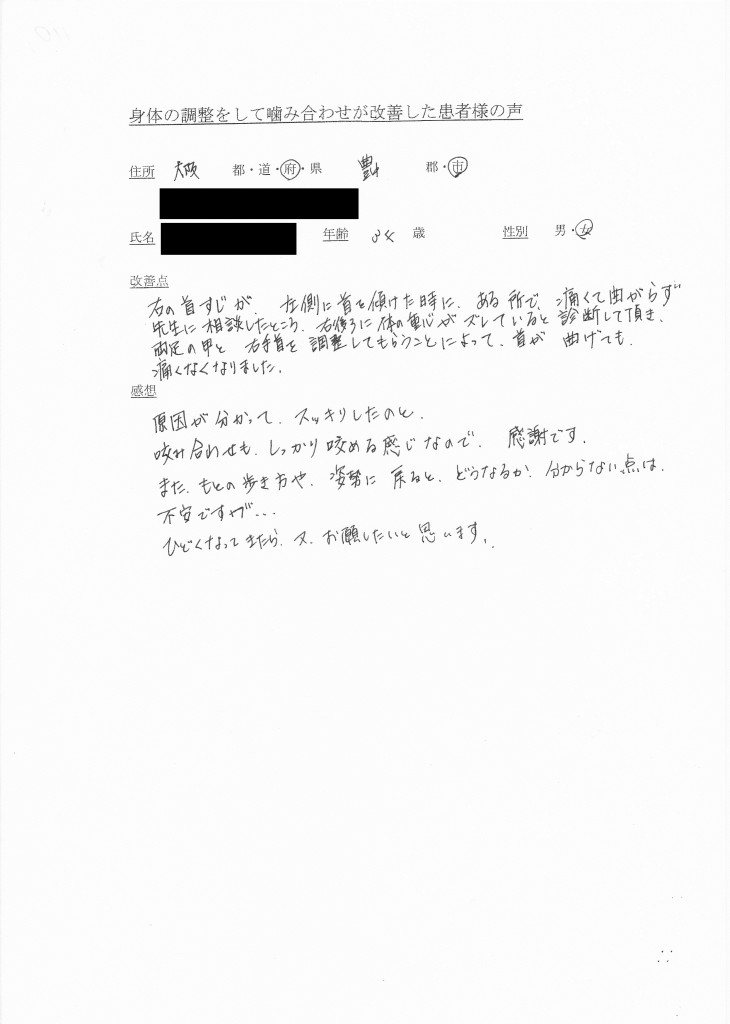 身体の調整をして噛み合わせが改善した患者様の声
住所 大阪 都・道・府・県 豊中 郡・市
氏名 年齢 34 歳 性別 男・女
改善点
右の首すじが、左側に首を傾けた時に、ある所で、痛くて曲がらず
先生に相談したところ、右後ろに体の重心がズレていると診断して頂き、
両足の甲と 右手首を 調整してもらうことによって、首が 曲げても、
痛くなくなりました。
感想
原因が分かって、スッキリしたのと、
咬み合わせも、しっかり咬める感じなので、感謝です。
また、もとの歩き方や、姿勢に 戻ると、どうなるか、分からない点は、
不安ですが…
ひどくなってきたら、又、お願したいと思います。